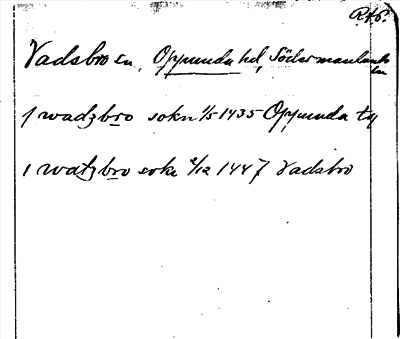 RAp.
Vadsbro sn, Oppunda hd, Södermanlands
län
J wadzbro sokn 1/5 1435 Oppunda tg
i watzbro sokn 2/12 1447 Vadsbro